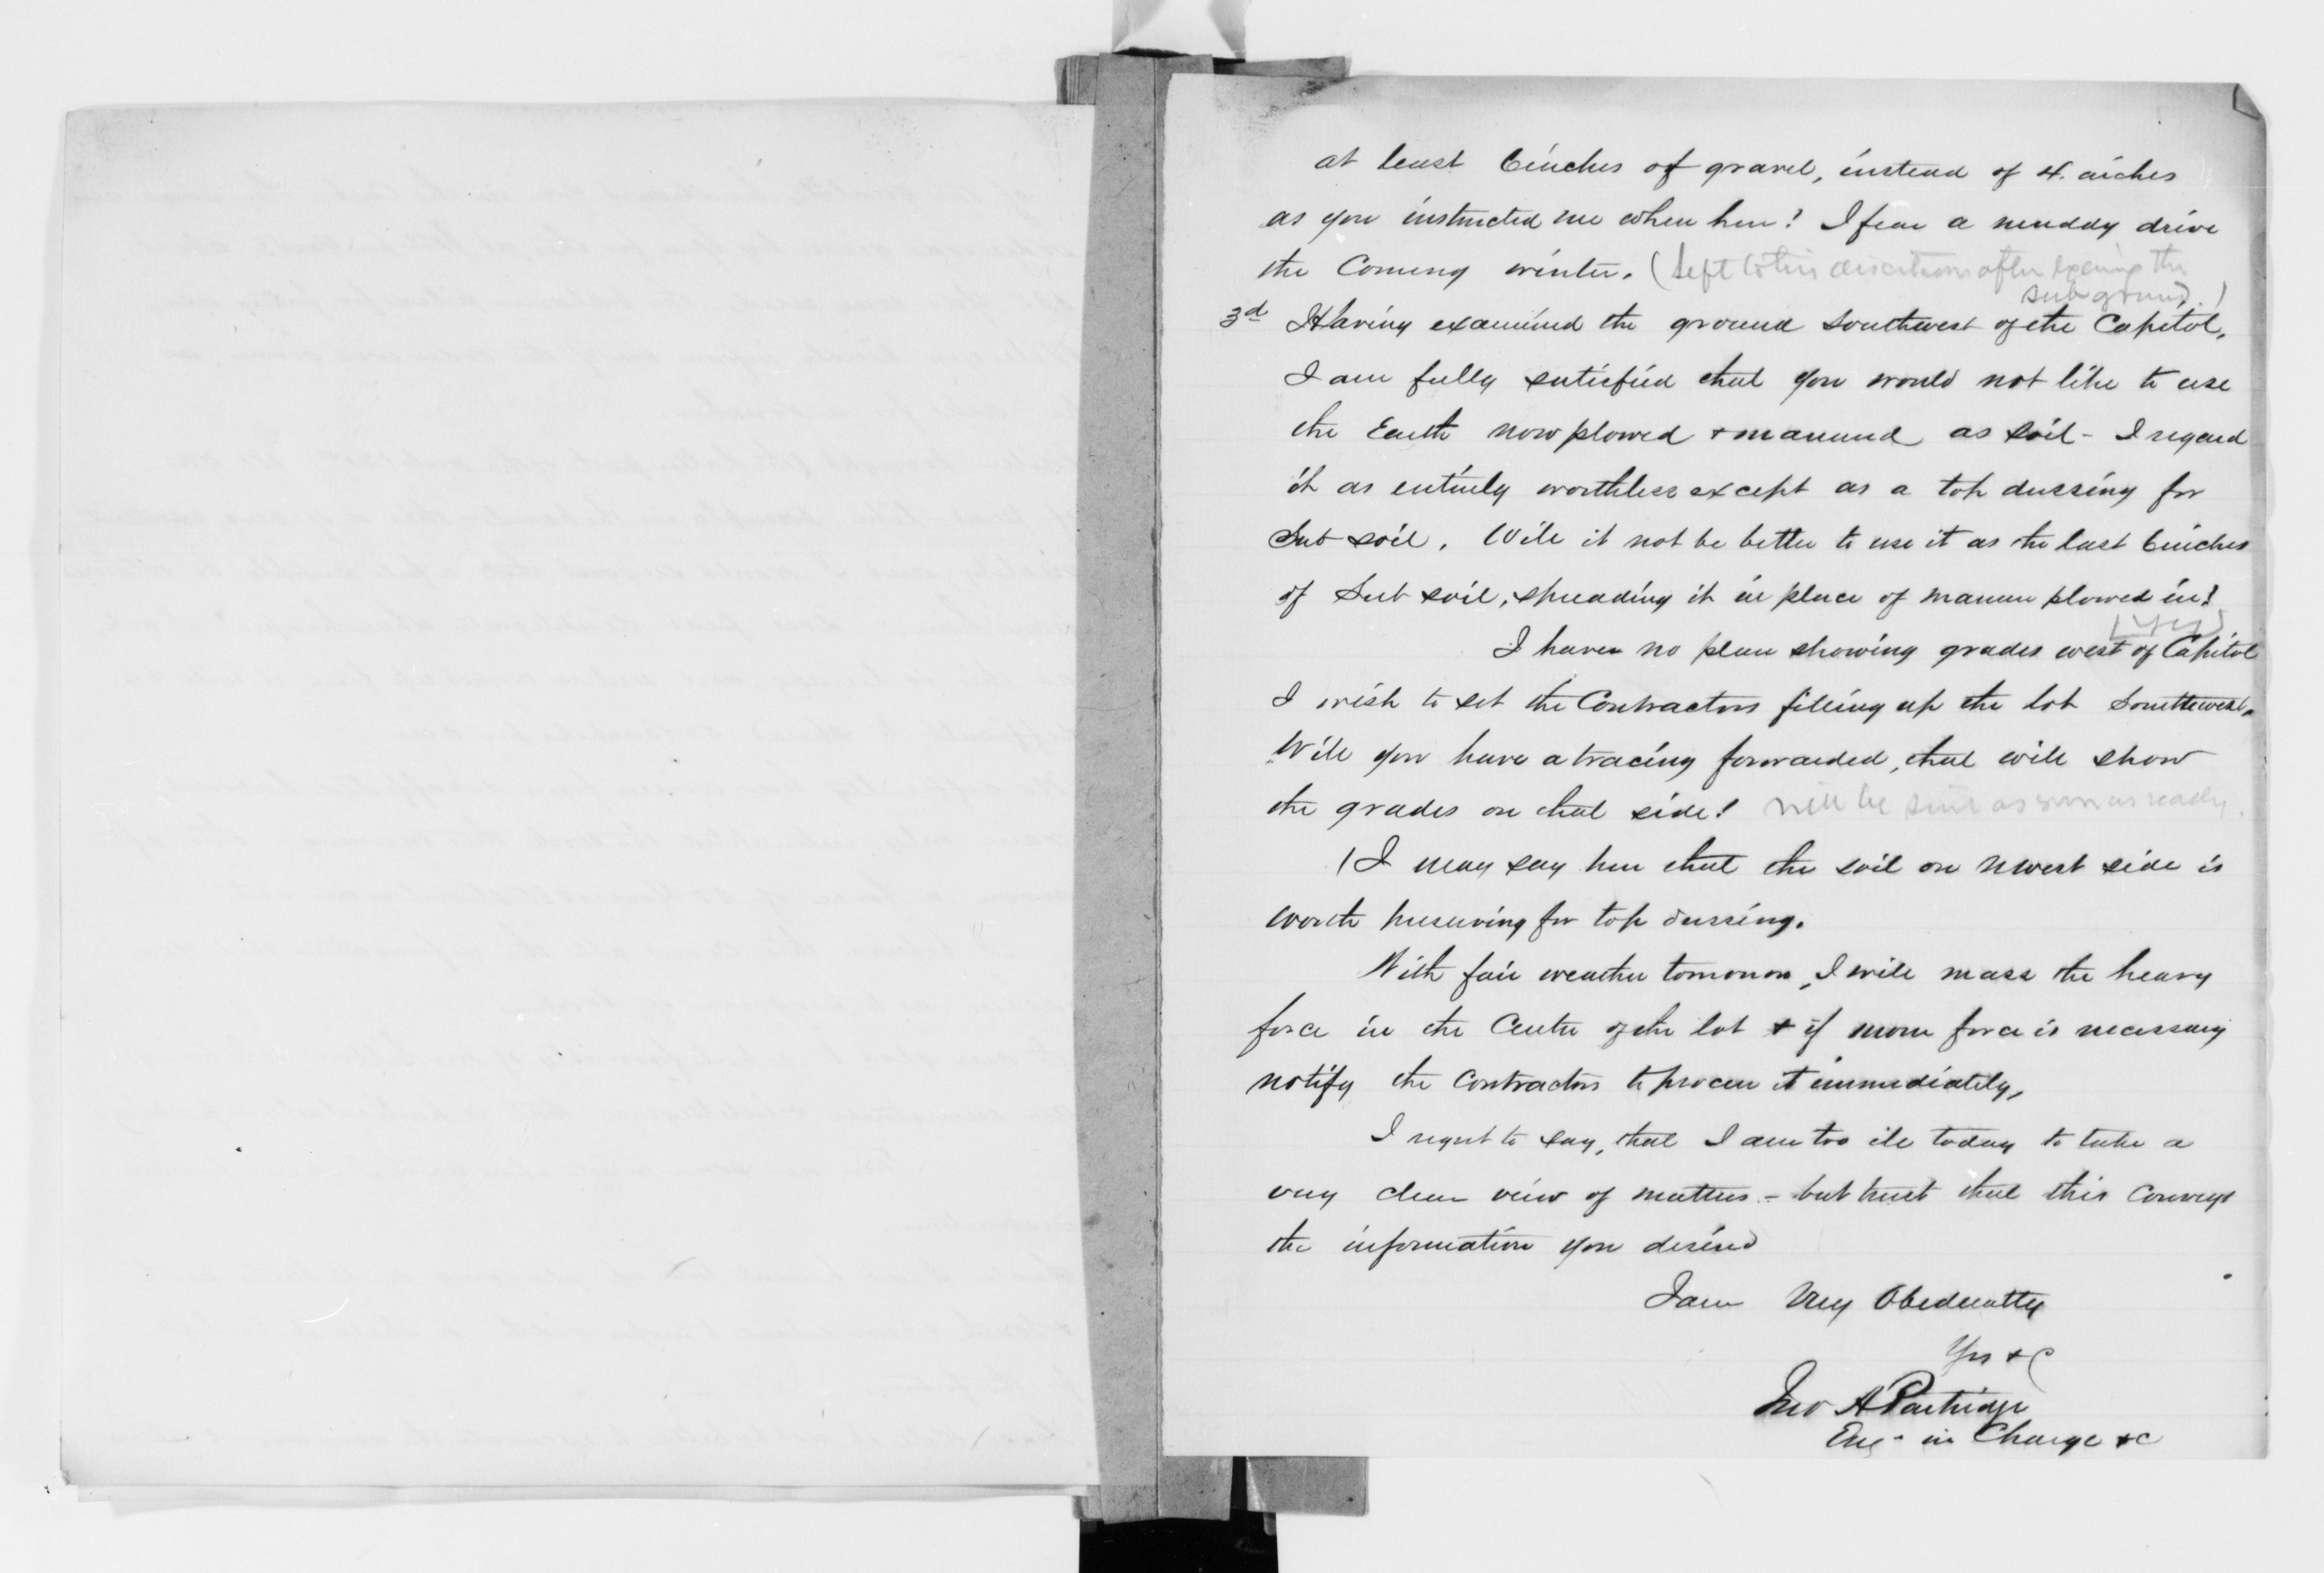 at least 6 inches of gravel, instead of 4. inches
as you instructed me when here? I fear a muddy drive
the Coming winter. (Left to his discretion after the
sub ground.)
3d Having examined the ground Southwest of the Capitol,
I am fully satisfied that you would not like to use
the Earth now plowed & manured as soil - I regard
it as entirely worthless except as a top dressing for
Sub soil. Will it not be better to use it as the last 6 inches
of Sub soil, spreading it in place of manure plowed in?
(Yes)
I have no plan showing grades west of Capitol
I wish to set the Contractors filling up the lot Southwest.
Will you have a tracing forwarded, that will show
the grades on that side? will be sent as soon as ready.
(I may say here that the soil on N west side is
worth preserving for top dressing.
With fair weather tomorrow, I will mass the heavy
force in the Centre of the lot & if more force is necessary
notify the Contractors to procure it immediately,
I regret to say, that I am too ill today to take a
very clear view of matters - but trust that this Conveys
the information you desired
I am Very Obediently
Yrs &c
Jno A Partridge
Eng. in Charge &c